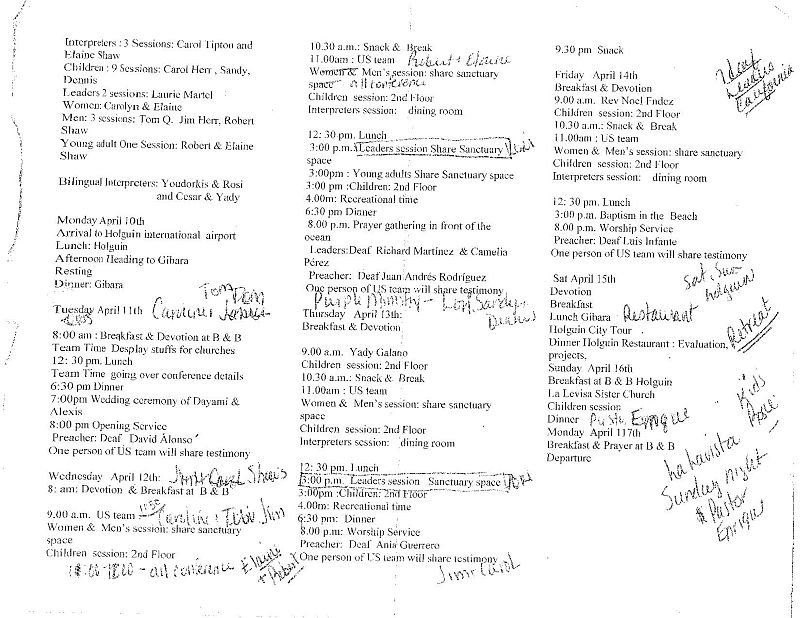 Interpreters : 3 Sessions: Carol Tipton and
Elaine Shaw
Children : 9 Sessions: Carol Herr , Sandy,
Dennis
Leaders 2 sessions: Laurie Martel
Women: Carolyn & Elaine
Men: 3 sessions: Tom Q. Jim Herr, Robert
Shaw
Young adult One Session: Robert & Elaine
Shaw
Bilingual Interpreters: Youdorkis & Rosi
and Cesar & Yady
Monday April 10th
Arrival to Holguin international airport
Lunch: Holguin
Afternoon Heading to Gibara
Resting
Dinner: Gibara
Tom
Tuesday April 11th
8:00 am : Breakfast & Devotion at B & B
Team Time Desplay stuffs for churches
12: 30 pm. Lunch
Team Time going over conference details
6:30 pm Dinner
7:00pm Wedding ceremony of Dayami &
Alexis
8:00 pm Opening Service
Preacher: Deaf David Alonso
One person of US team will share testimony
Wednesday April 12th:
8: am: Devotion & Breakfast at B & B
9.00 a.m. US team
Women & Men's session: share sanctuary
space
Children session: 2nd Floor
all conference Elaine
+ Robert
10.30 a.m.: Snack & Break
11.00am : US team Robert + Elaine
Women & Men's session: share sanctuary
space all conference
Children session: 2nd Floor
Interpreters session: dining room
12: 30 pm. Lunch
3:00 p.m. Leaders session Share Sanctuary
space
3:00pm : Young adults Share Sanctuary space
3:00 pm :Children: 2nd Floor
4.00m: Recreational time
6:30 pm Dinner
8.00 p.m. Prayer gathering in front of the
ocean
Leaders:Deaf Richard Martínez & Camelia
Pérez
Preacher: Deaf Juan Andrés Rodríguez
One person of US team will share testimony
Purple Ministry - Sandy
Dennis
Thursday April 13th:
Breakfast & Devotion
9.00 a.m. Yady Galano
Children session: 2nd Floor
10.30 a.m.: Snack & Break
11.00am : US team
Women & Men's session: share sanctuary
space
Children session: 2nd Floor
Interpreters session: dining room
12: 30 pm. Lunch
3:00 p.m. Leaders session Sanctuary space
3:00pm :Children: 2nd Floor
4.00m: Recreational time
6:30 pm: Dinner
8.00 p.m: Worship Service
Preacher: Deaf Anis Guerrero
One person of US team will share testimony
Jim + Carol
9.30 pm Snack
Friday April 14th
Breakfast & Devotion
9.00 a.m. Rev Noel Fndez
Children session: 2nd Floor
10.30 a.m.: Snack & Break
11.00am : US team
Women & Men's session: share sanctuary
Children session: 2nd Floor
Interpreters session: dining room
Deaf
California
12: 30 pm. Lunch
3:00 p.m. Baptism in the Beach
8.00 p.m. Worship Service
Preacher: Deaf Luis Infante
One person of US team will share testimony
Sat April 15th
Devotion
Breakfast
Lunch Gibara Restaurant
Holguin City Tour
Dinner Holguin Restaurant : Evaluation,
projects.
Sat. Sun
holguin
Retreat
Sunday April 16th
Breakfast at B & B Holguin
La Levisa Sister Church
Children session
Dinner Enrique
Monday April 117th
Breakfast & Prayer at B & B
Departure
Kids
Sunday night
Pastor
Enrique